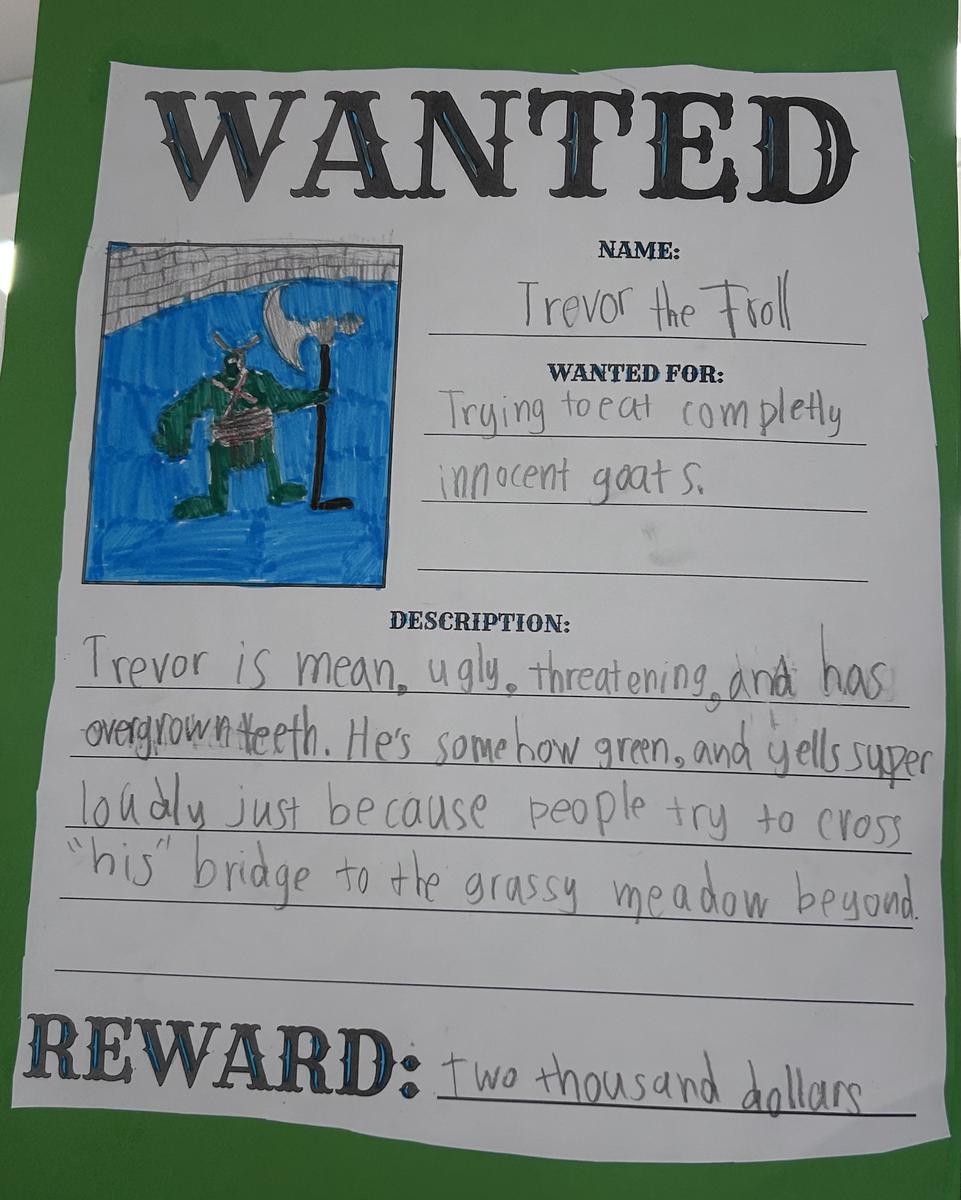 WANTED
NAME:
Trevor the Troll
WANTED FOR:
Trying to eat completly
innocent goats.
DESCRIPTION:
Trevor is mean, ugly, threatening, and has
overgrown teeth. He's somehow green, and yells super
loudly just because people try to cross
"his" bridge to the grassy meadow beyond.
REWARD: two thousand dollars